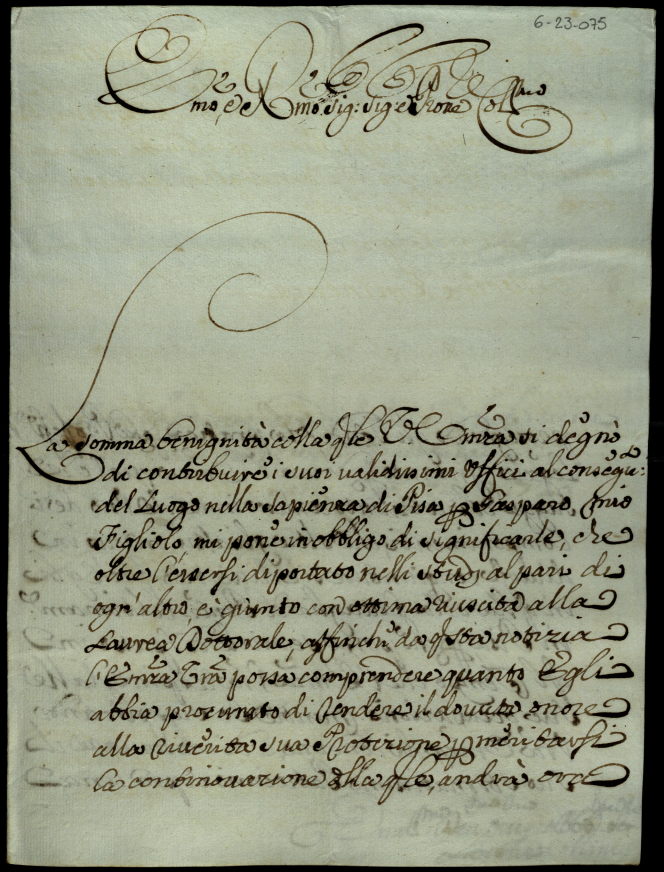 6-23-075
Em̃o, e Rm̃o Sig: Sig: e Prone Col.mo
La somma benignità colla q̃le V. Em̃za si degnò
di contribuire i suoi validissimi Uffici al consegu:to
del Luogo nella Sapienza di Pisa p Gasparo, mio
Figliolo, mi pone in obbligo di significarle, che
oltre l'essersi diportato nelli studj al pari di
ogn'altro, è giunto con ottima riuscita alla
Laurea Dottorale, affinchè da q̃sta notizia
l'Em̃za Vr̃a possa comprendere quanto Egli
abbia procurato di rendere il dovuto onore
alla riverita sua Protezione, p meritarsi
la continovazione della q̃le, andrà ora